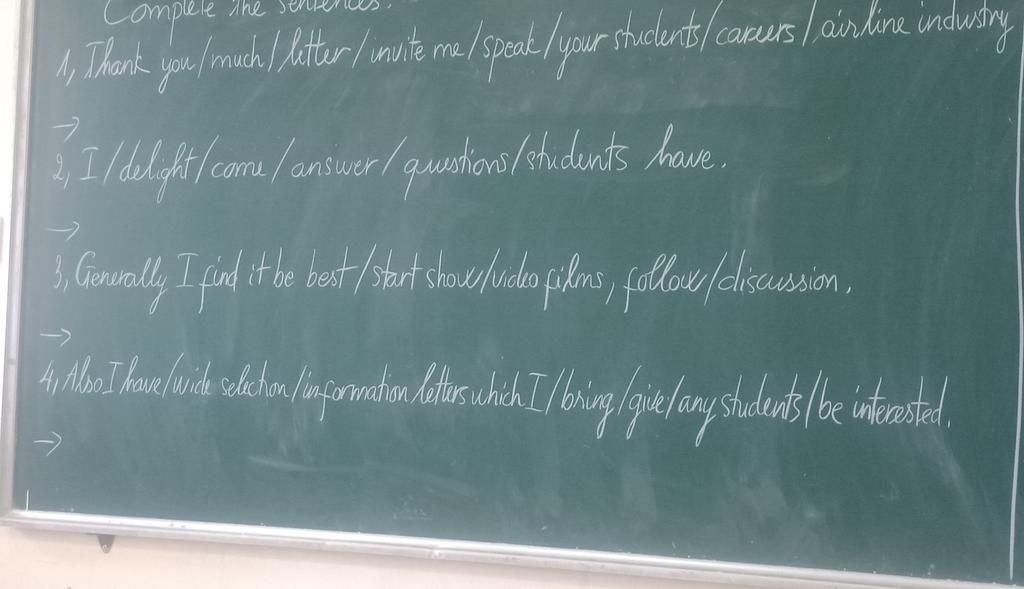 Complete the sentences.
1, Thank you/much/letter/invite me/speak/your students/careers/airline industry
→
2, I/delight/come/answer/questions/students have.
→
3, Generally I find it be best/start show/video films, follow/discussion.
→
4, Also I have/wide selection/information letters which I/bring/give/any students/be interested.
→